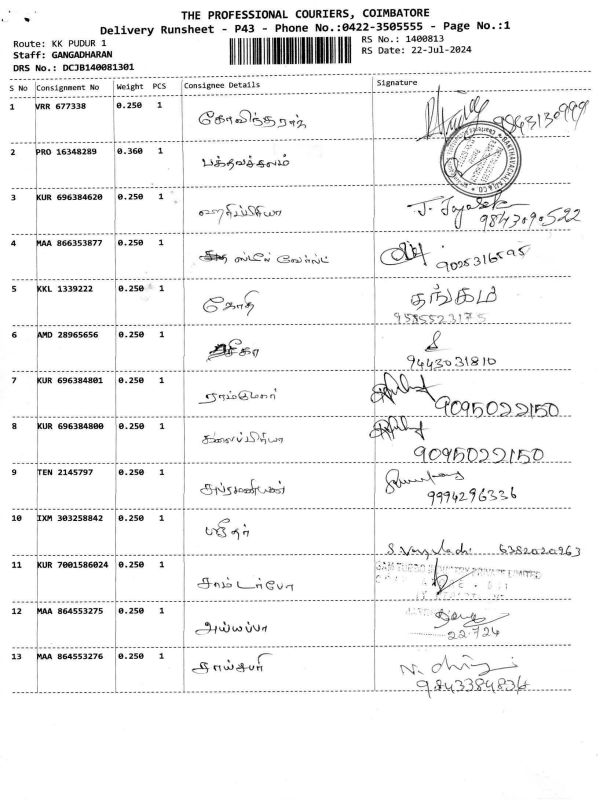 THE PROFESSIONAL COURIERS, COIMBATORE
Delivery Runsheet - P43 - Phone No.:0422-3505555 - Page No.:1
Route: KK PUDUR 1 RS No.: 1400813
Staff: GANGADHARAN RS Date: 22-Jul-2024
DRS No.: DCJB140081301
S No Consignment No Weight PCS Consignee Details Signature
1 VRR 677338 0.250 1 கோவிந்தராஜ் 9843130999
2 PRO 16348289 0.360 1 பக்தவச்சலம்
3 KUR 696384620 0.250 1 ஹரிப்பிரியா J. Jayalek 9843090522
4 MAA 866353877 0.250 1 ஸ்டீல் வேர்ல்ட் 9025316595
5 KKL 1339222 0.250 1 ஜோதி தங்கம்
9585523175
6 AMD 28965656 0.250 1 9443031810
7 KUR 696384801 0.250 1 ராம்குமார் 9095022150
8 KUR 696384800 0.250 1 கலைப்பிரியா 9095022150
9 TEN 2145797 0.250 1 சுப்ரமணியன் 9994296336
10 IXM 303258842 0.250 1 ஸ்ரீதர் 6382020963
11 KUR 7001586024 0.250 1 சாம் டர்போ SAM TURBO INDUSTRY PRIVATE LIMITED
12 MAA 864553275 0.250 1 அய்யப்பா
22.7.24
13 MAA 864553276 0.250 1 சாய்சபரி
9843384834